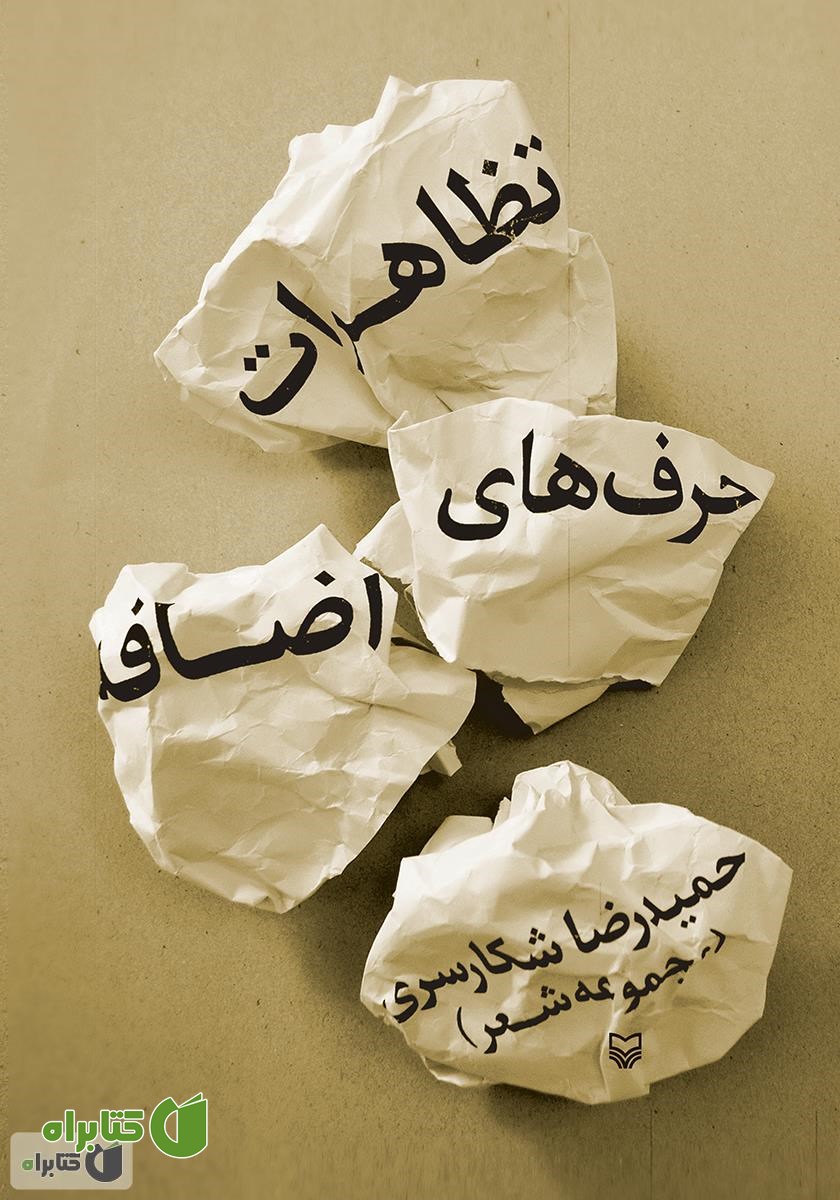 تظاهرات
حرف‌های
اضافه
حمیدرضا شکارسری
(مجموعه شعر)
کتابراه
کتابراه